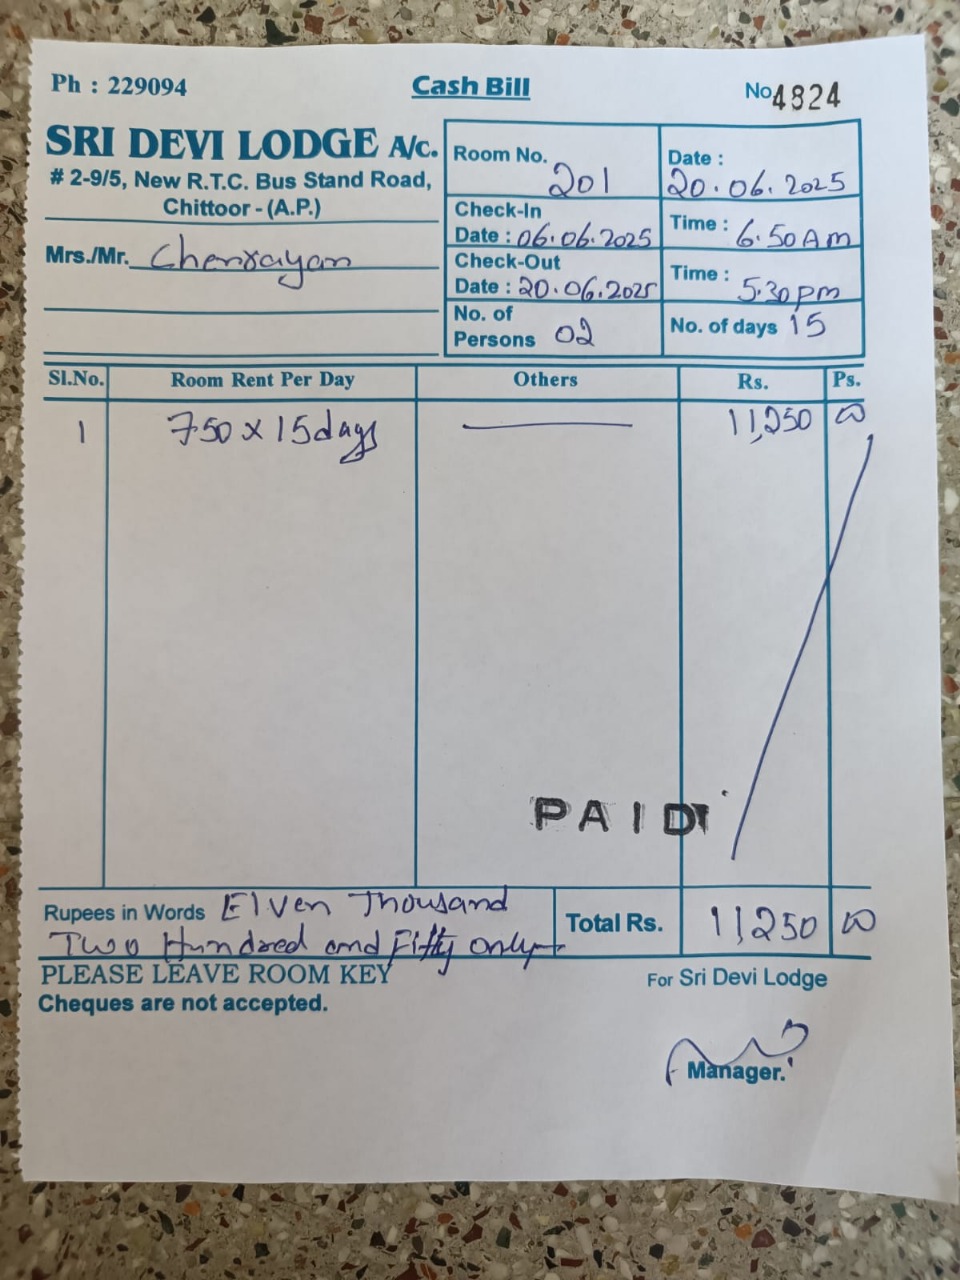 Ph : 229094
Cash Bill
No 4824
SRI DEVI LODGE A/c.
# 2-9/5, New R.T.C. Bus Stand Road,
Chittoor - (A.P.)
Mrs./Mr. Chenrayan
Room No. 201
Date : 20.06.2025
Check-In
Date : 06.06.2025
Time : 6.50 AM
Check-Out
Date : 20.06.2025
Time : 5.30 pm
No. of
Persons 02
No. of days 15
Sl.No. Room Rent Per Day Others Rs. Ps.
1 750 x 15 days 11,250 00
PAID
Rupees in Words Elven Thousand
Two Hundred and Fifty only
Total Rs. 11,250 00
PLEASE LEAVE ROOM KEY
For Sri Devi Lodge
Cheques are not accepted.
Manager.